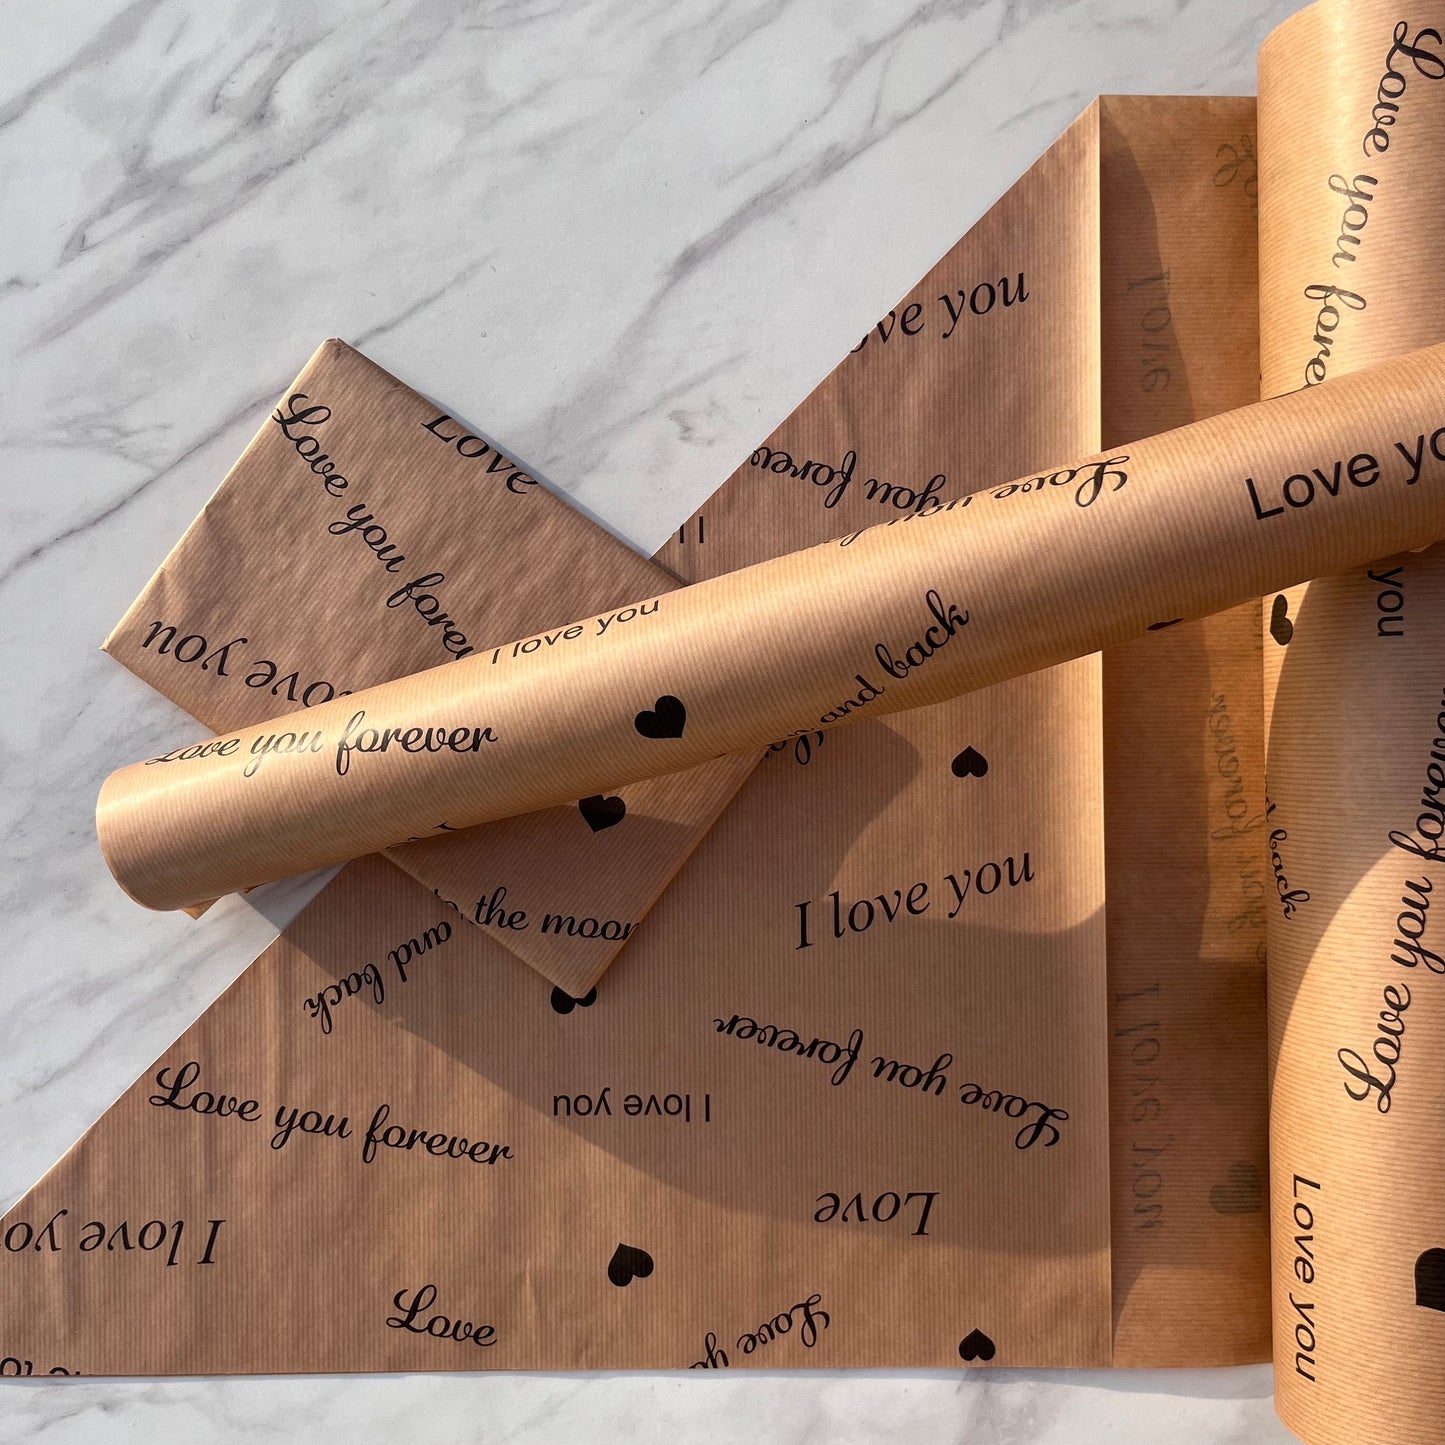 Love you forever
ve you
Love
Love you forever
Love you
Love you forever
Love you
I love you
Love you forever
and back
I love you
you
Love you forever
to the moon
and back
I love you
back
Love you forever
Love you forever
I love you
Love you forever
Love
I love you
Love you
Love
Love you
Love
I love you